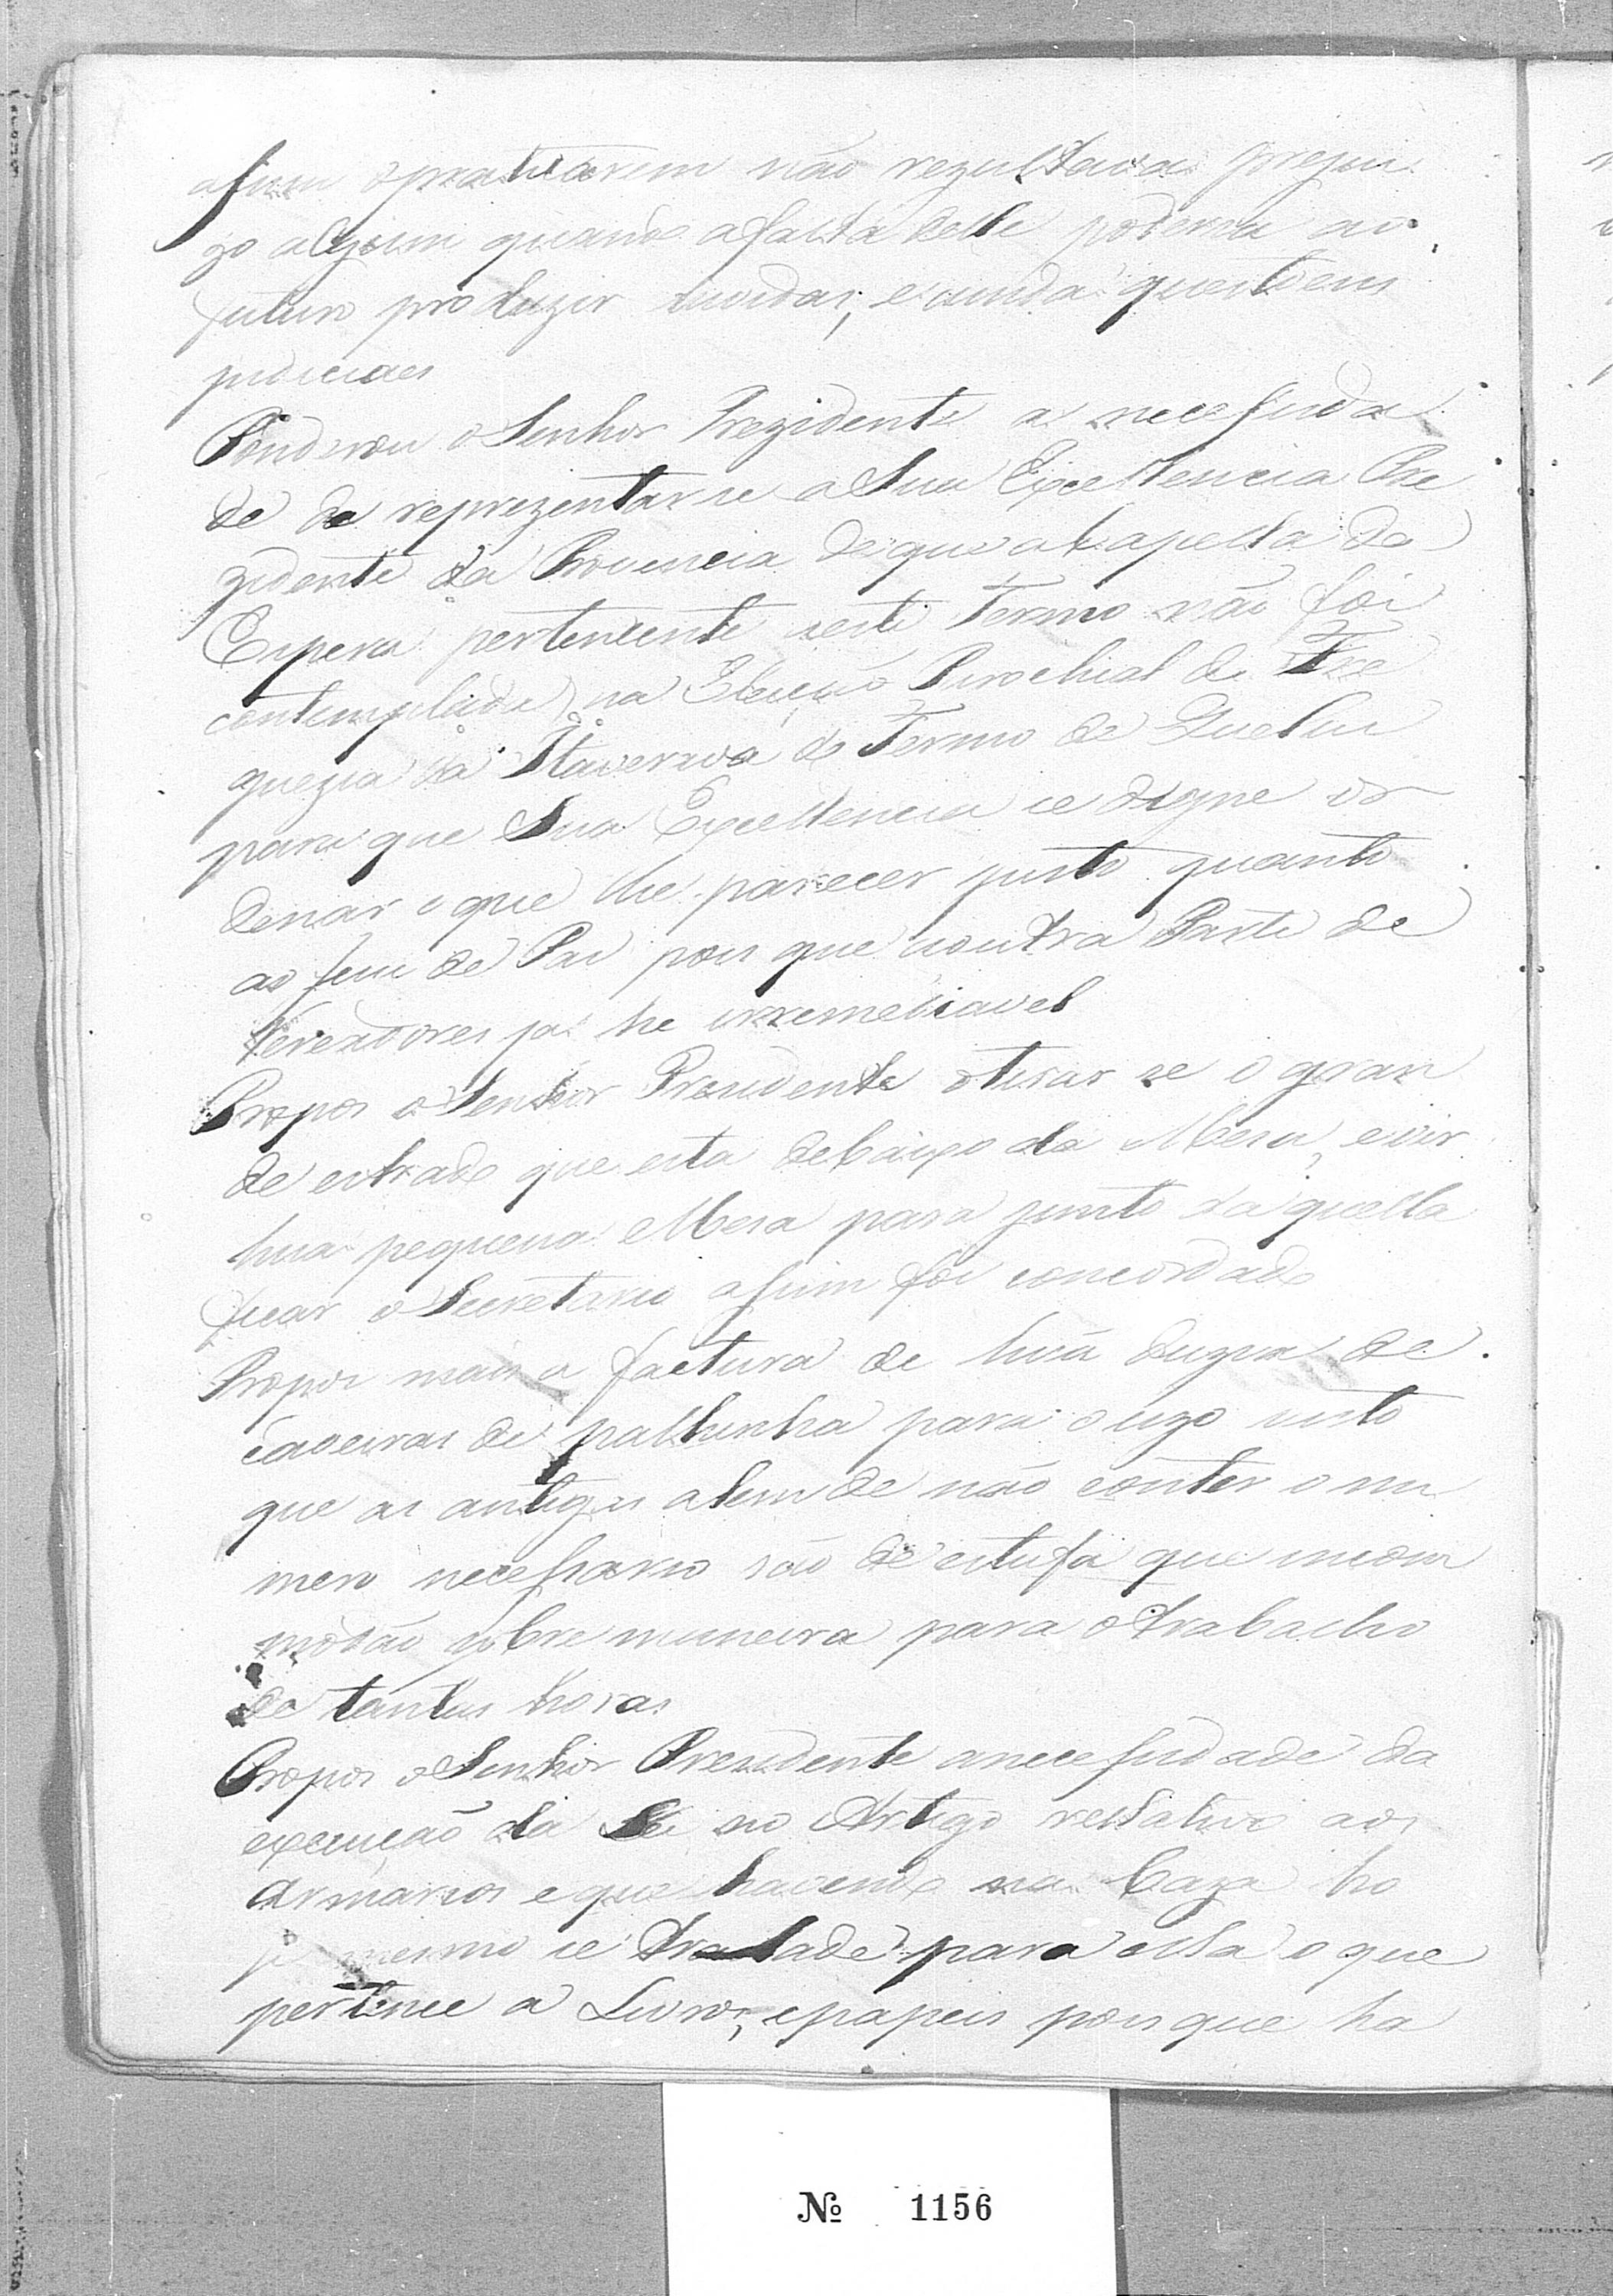 assim o praticarem não rezultava prejui
zo algum quando a falta delle poderia ao
futuro produzir duvidas, e ainda questoens
judiciaes
Ponderou o Senhor Prezidente a necessida
de de reprezentarse a Sua Excellencia Pre
zidente da Provencia de que a Capella da
Espera pertencente a este Termo não foi
contemplada na Eleição Parochial da Fre
guezia da Itaverava do Termo de Queluz
para que Sua Excellencia se digne or
denar o que lhe parecer justo quanto
ao Juiz de Paz pois que noutra Parte de
Vereadores já he irremediavel
Propos o Senhor Presidente o tirar se o gran
de estrado que esta debaixo da Mesa, e vir
hua pequena Mesa para junto daquella
ficar o Secretario assim foi concordado
Propos mais a factura de huã duzia de
cadeiras de palhinha para o uzo visto
que as antigas alem de não conter o nu
mero necessario são de estofa que incom
modão sobre maneira para o trabalho
de tantas horas
Propos o Senhor Presidente a necessidade da
execução da Lei no Artigo rellativo aos
Armarios e que havendo na Caza ho
je mesmo se traslade para ella o que
pertence a Livros, e papeis pois que ha
Nº 1156